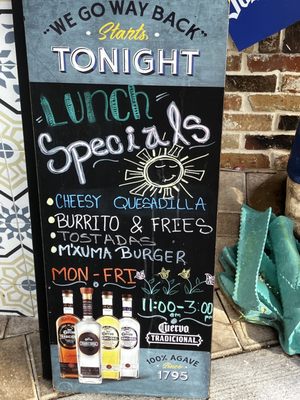 "WE GO WAY BACK"
Starts
TONIGHT
Lunch
Specials
CHEESY QUESADILLA
BURRITO & FRIES
TOSTADAS
M'XUMA BURGER
MON-FRI
11:00-3:00
PM
Cuervo
TRADICIONAL
100% AGAVE
Since
1795